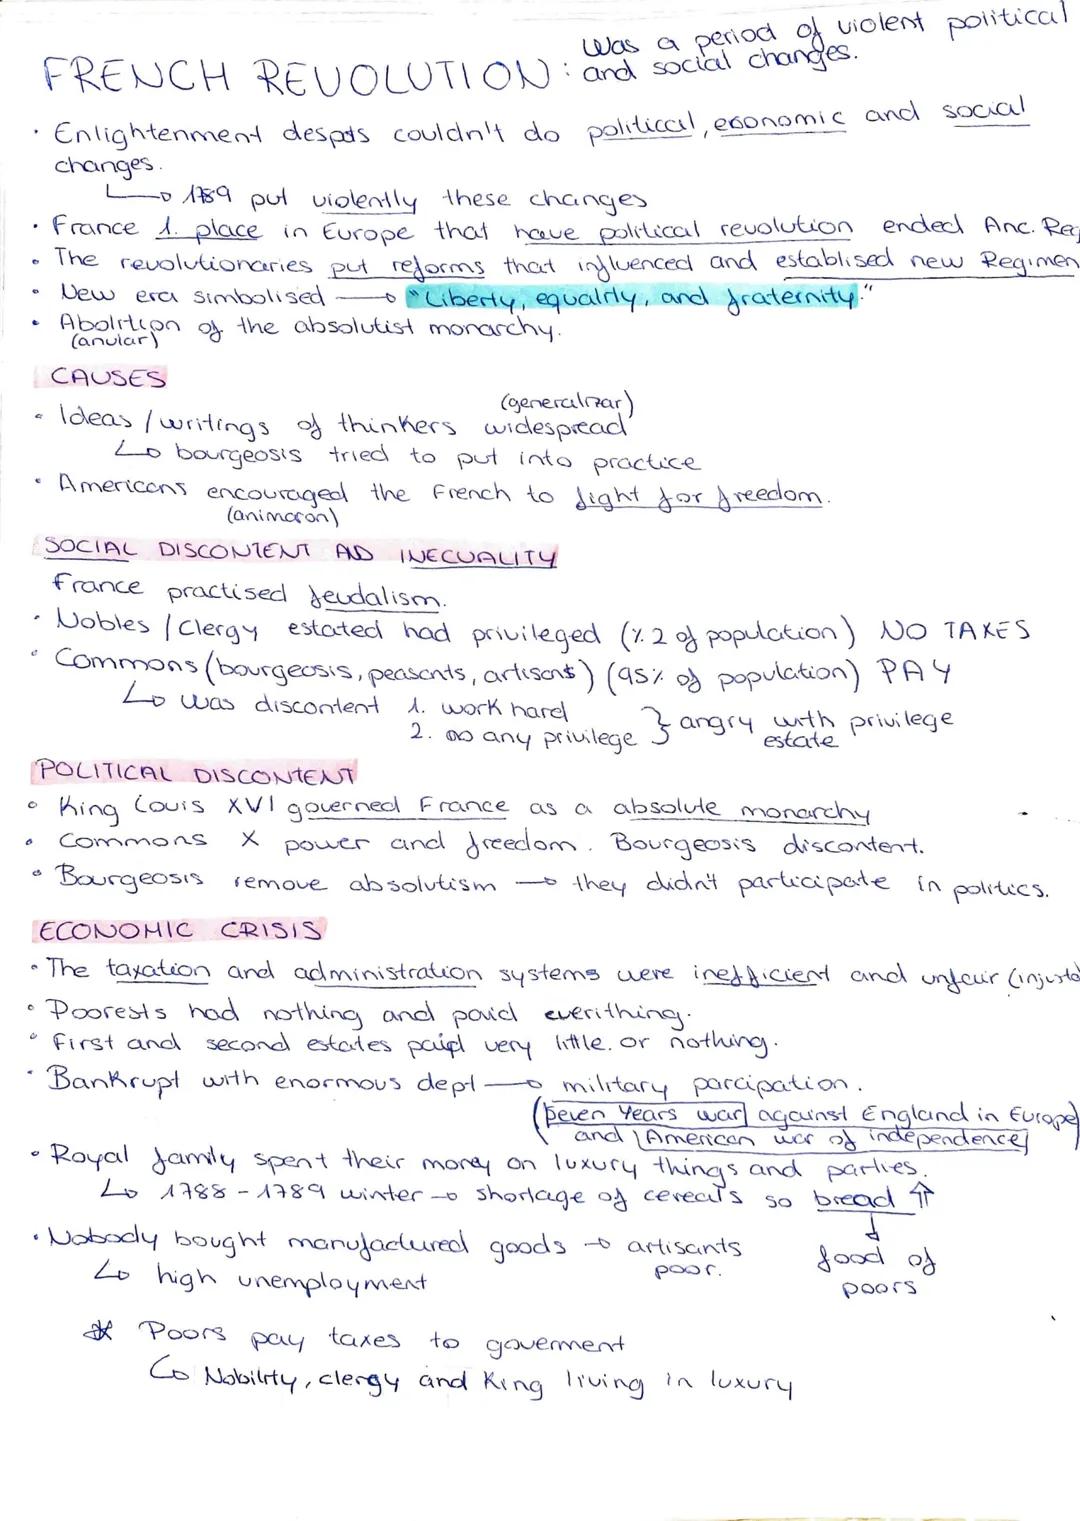 Was a period of violent political
FRENCH REVOLUTION: and social changes.
• Enlightenment despots couldn't do political, economic and social
changes.
↳ 1789 put violently these changes
• France 1. place in Europe that have political revolution ended Anc. Reg
• The revolutionaries put reforms that influenced and establised new Regimen
• New era simbolised → "Liberty, equality, and fraternity."
• Abolition of the absolutist monarchy.
(anular)
CAUSES
(generalizar)
• Ideas / writings of thinkers widespread
↳ bourgeosis tried to put into practice
• Americans encouraged the French to fight for freedom.
(animaron)
SOCIAL DISCONTENT AND INECUALITY
France practised feudalism.
• Nobles / Clergy estated had privileged (% 2 of population) NO TAXES
• Commons (bourgeosis, peasants, artisans) (95% of population) PAY
↳ was discontent 1. work hard
2. no any privilege } angry with privilege
estate
POLITICAL DISCONTENT
• King Louis XVI governed France as a absolute monarchy
• Commons X power and freedom. Bourgeosis discontent.
• Bourgeosis remove absolutism → they didn't participate in politics.
ECONOMIC CRISIS
• The taxation and administration systems were inefficient and unfair (injusto
• Poorests had nothing and paid everithing.
• First and second estates paid very little. or nothing.
• Bankrupt with enormous dept → military parcipation.
(Seven Years war against England in Europe)
and American war of independence)
• Royal family spent their money on luxury things and parties.
↳ 1788 - 1789 winter → shortage of cereals so bread ⇑
• Nobody bought manufactured goods → artisants
poor.
food of
poors
↳ high unemployment
* Poors pay taxes to goverment
↳ Nobility, clergy and King living in luxury